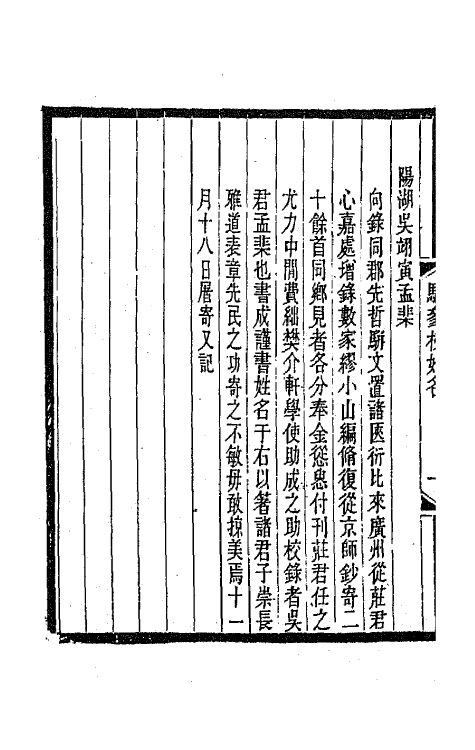 陽湖吳翊寅孟棐
向錄同郡先哲駢文置諸医衍比來廣州從莊君
心嘉處增錄數家繆小山編脩復從京師鈔寄二
十餘首同鄉見者各分奉金慫恿付刊莊君任之
尤力中閒費絀樊介軒學使助成之助校錄者吳
君孟棐也書成謹書姓名于右以箸諸君子崇長
雅道表章先民之功寄之不敏毋敢掠美焉十一
月十八日屠寄又記